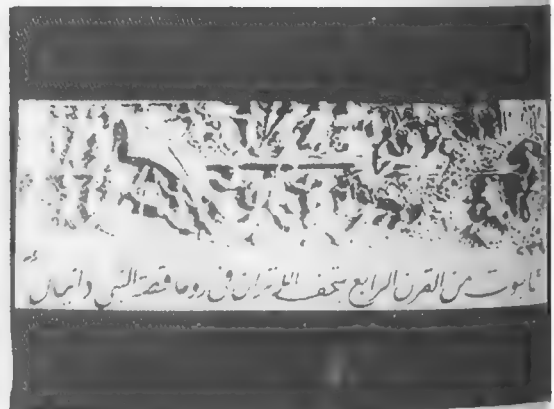 تابوت من القرن الرابع بمتحف اللاتران في روما قصة النبي دانيال